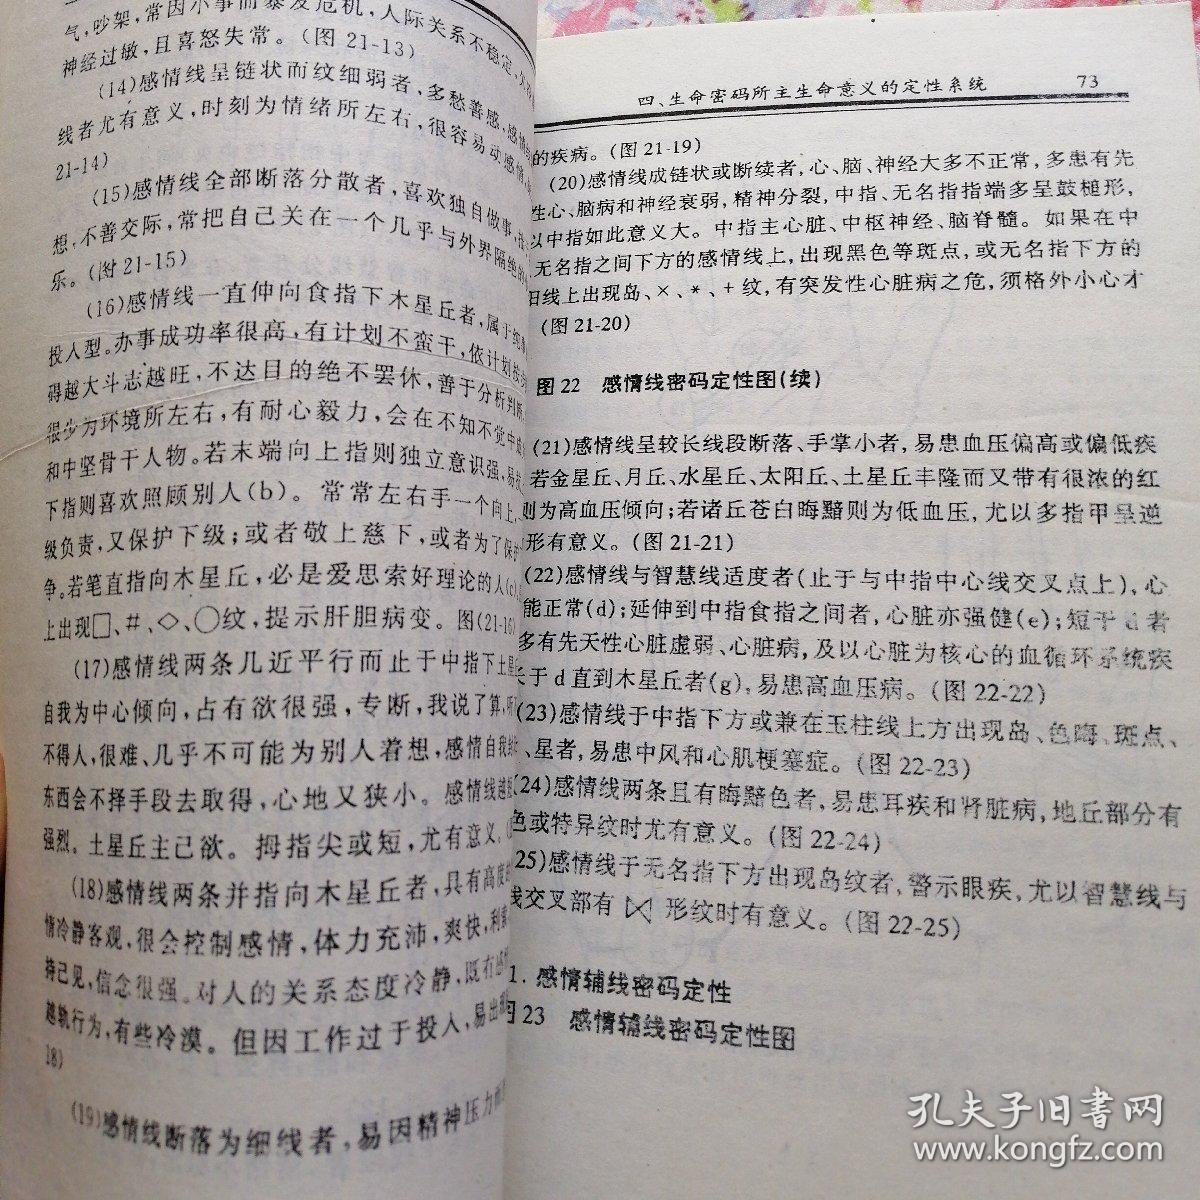 气,吵架,常因小事而暴发危机,人际关系不稳定,
神经过敏,且喜怒失常。(图 21-13)
(14)感情线呈链状而纹细弱者,多愁善感,感情
线者尤有意义,时刻为情绪所左右,很容易动感情
21-14)
(15)感情线全部断落分散者,喜欢独自做事,
想,不善交际,常把自己关在一个几乎与外界隔绝的
乐。(图21-15)
(16)感情线一直伸向食指下木星丘者,属于
投人型。办事成功率很高,有计划不蛮干,依计划按
碍越大斗志越旺,不达目的绝不罢休,善于分析判断
很少为环境所左右,有耐心毅力,会在不知不觉中成
和中坚骨干人物。若末端向上指则独立意识强,易
下指则喜欢照顾别人(b)。常常左右手一个向上,
级负责,又保护下级;或者敬上慈下,或者为了保
争。若笔直指向木星丘,必是爱思索好理论的人(c)
上出现□、#、◇、○纹,提示肝胆病变。图(21-16)
(17)感情线两条几近平行而止于中指下土星
自我为中心倾向,占有欲很强,专断,我说了算,听
不得人,很难、几乎不可能为别人着想,感情自我
东西会不择手段去取得,心地又狭小。感情线越
强烈。土星丘主己欲。拇指尖或短,尤有意义。
(18)感情线两条并指向木星丘者,具有高度的
情冷静客观,很会控制感情,体力充沛,爽快,利
持己见,信念很强。对人的关系态度冷静,既有感
越轨行为,有些冷漠。但因工作过于投人,易出
18)
(19)感情线断落为细线者,易因精神压力而
四、生命密码所主生命意义的定性系统 73
的疾病。(图 21-19)
(20)感情线成链状或断续者,心、脑、神经大多不正常,多患有先
性心、脑病和神经衰弱,精神分裂,中指、无名指指端多呈鼓槌形,
以中指如此意义大。中指主心脏、中枢神经、脑脊髓。如果在中
无名指之间下方的感情线上,出现黑色等斑点,或无名指下方的
阳线上出现岛、×、*、+纹,有突发性心脏病之危,须格外小心才
(图 21-20)
图 22 感情线密码定性图(续)
(21)感情线呈较长线段断落、手掌小者,易患血压偏高或偏低疾
若金星丘、月丘、水星丘、太阳丘、土星丘丰隆而又带有很浓的红
则为高血压倾向;若诸丘苍白晦黯则为低血压,尤以多指甲呈逆
形有意义。(图 21-21)
(22)感情线与智慧线适度者(止于与中指中心线交叉点上),心
能正常(d);延伸到中指食指之间者,心脏亦强健(e);短于d者
多有先天性心脏虚弱、心脏病,及以心脏为核心的血循环系统疾
长于 d 直到木星丘者(g),易患高血压病。(图 22-22)
(23)感情线于中指下方或兼在玉柱线上方出现岛、色晦、斑点、
、星者,易患中风和心肌梗塞症。(图 22-23)
(24)感情线两条且有晦黯色者,易患耳疾和肾脏病,地丘部分有
色或特异纹时尤有意义。(图 22-24)
25)感情线于无名指下方出现岛纹者,警示眼疾,尤以智慧线与
线交叉部有 形纹时有意义。(图 22-25)
1. 感情辅线密码定性
图 23 感情辅线密码定性图
孔夫子旧书网
www.kongfz.com